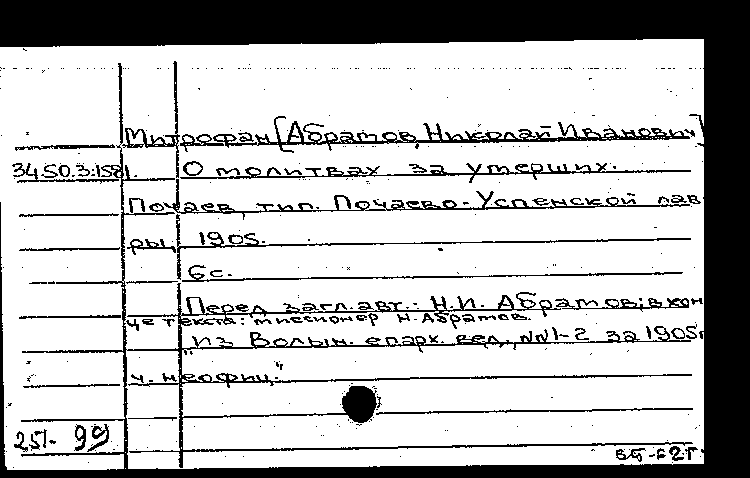 Митрофан [Абрамов, Николай Иванович]
34.50.3.158. О молитвах за умерших.
Почаев, тип. Почаево-Успенской лав
ры, 1905.
6с.
Перед загл. авт.: Н.И. Абрамов; в кон
це текста: миссионер Н. Абрамов.
"Из Волын. епарх. вед., №№1-2 за 1905г
ч. неофиц."
251- 99